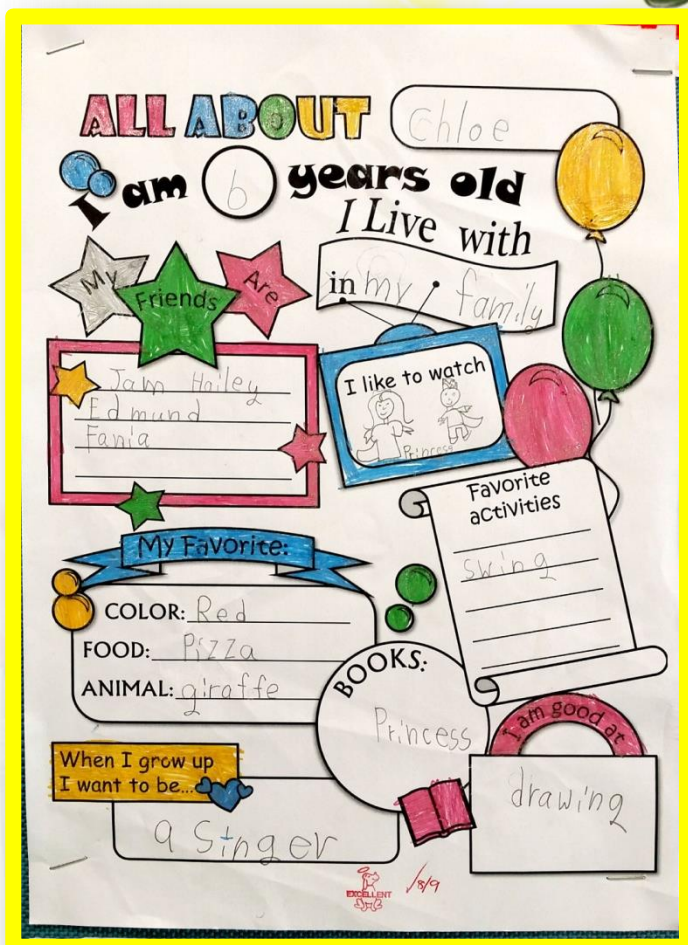 ALL ABOUT Chloe
I am 6 years old
I Live with
in my family
My Friends Are
Jam Hailey
Edmund
Fania
I like to watch
Princess
Favorite
activities
swing
My Favorite:
COLOR: Red
FOOD: Pizza
ANIMAL: giraffe
BOOKS:
Princess
I am good at
drawing
When I grow up
I want to be...
a Singer
EXCELLENT
18/9